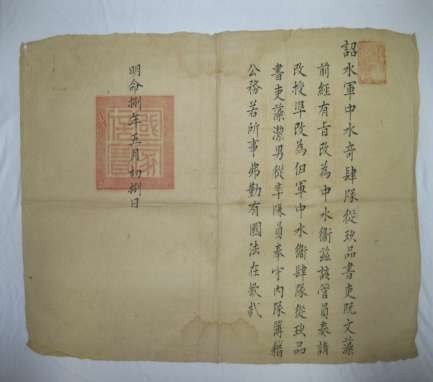 詔水軍中水奇肆隊從玖品書吏阮文藻
前經有旨改為中水衛茲該管員奏請
改授準改為軍中水衛肆隊從玖品
書吏藻潔男從隊員奉守內隊簿籍
公務若所事弗勤有國法在欽哉
明命捌年五月初捌日
國家信寶